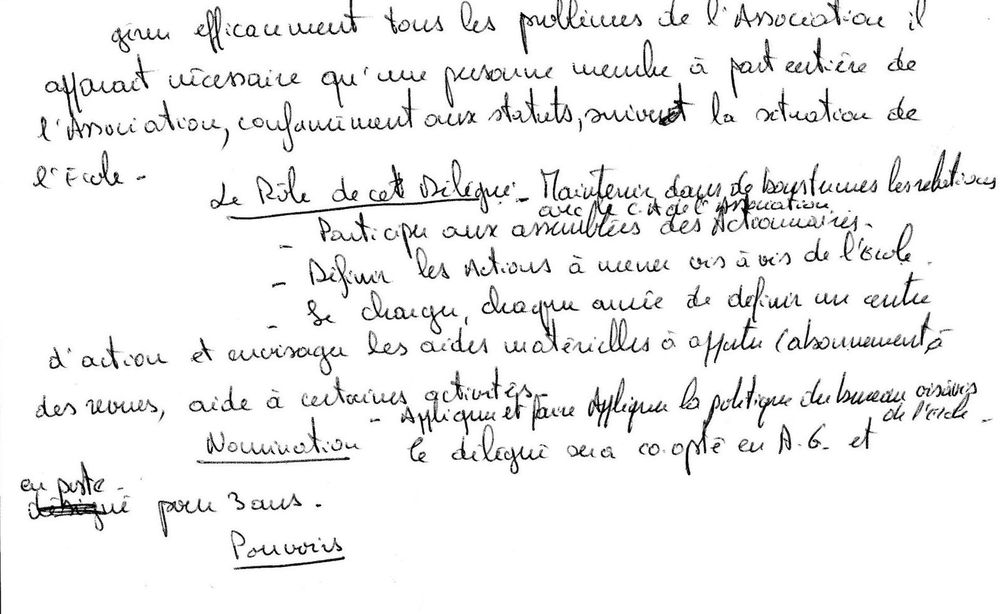 gérer efficacement tous les problèmes de l'Association il
apparait nécessaire qu'une personne membre à part entière de
l'Association, conformément aux statuts, suivent la situation de
l'Ecole -
Le Rôle de cet Délégué - Maintenir dans de bons termes les relations
avec le C.A de l'Association
- Participer aux assemblées des Actionnaires.
- Définir les Actions à mener vis à vis de l'Ecole.
- Se charger, chaque année de définir un centre
d'action et envisager les aides matérielles à apporter (abonnement à
des revues, aide à certaines activités -
- Appliquer et faire Appliquer la politique du bureau vis à vis
de l'Ecole -
Nomination le délégué sera co.opté en A.G. et
en poste -
pour 3 ans.
Pouvoirs